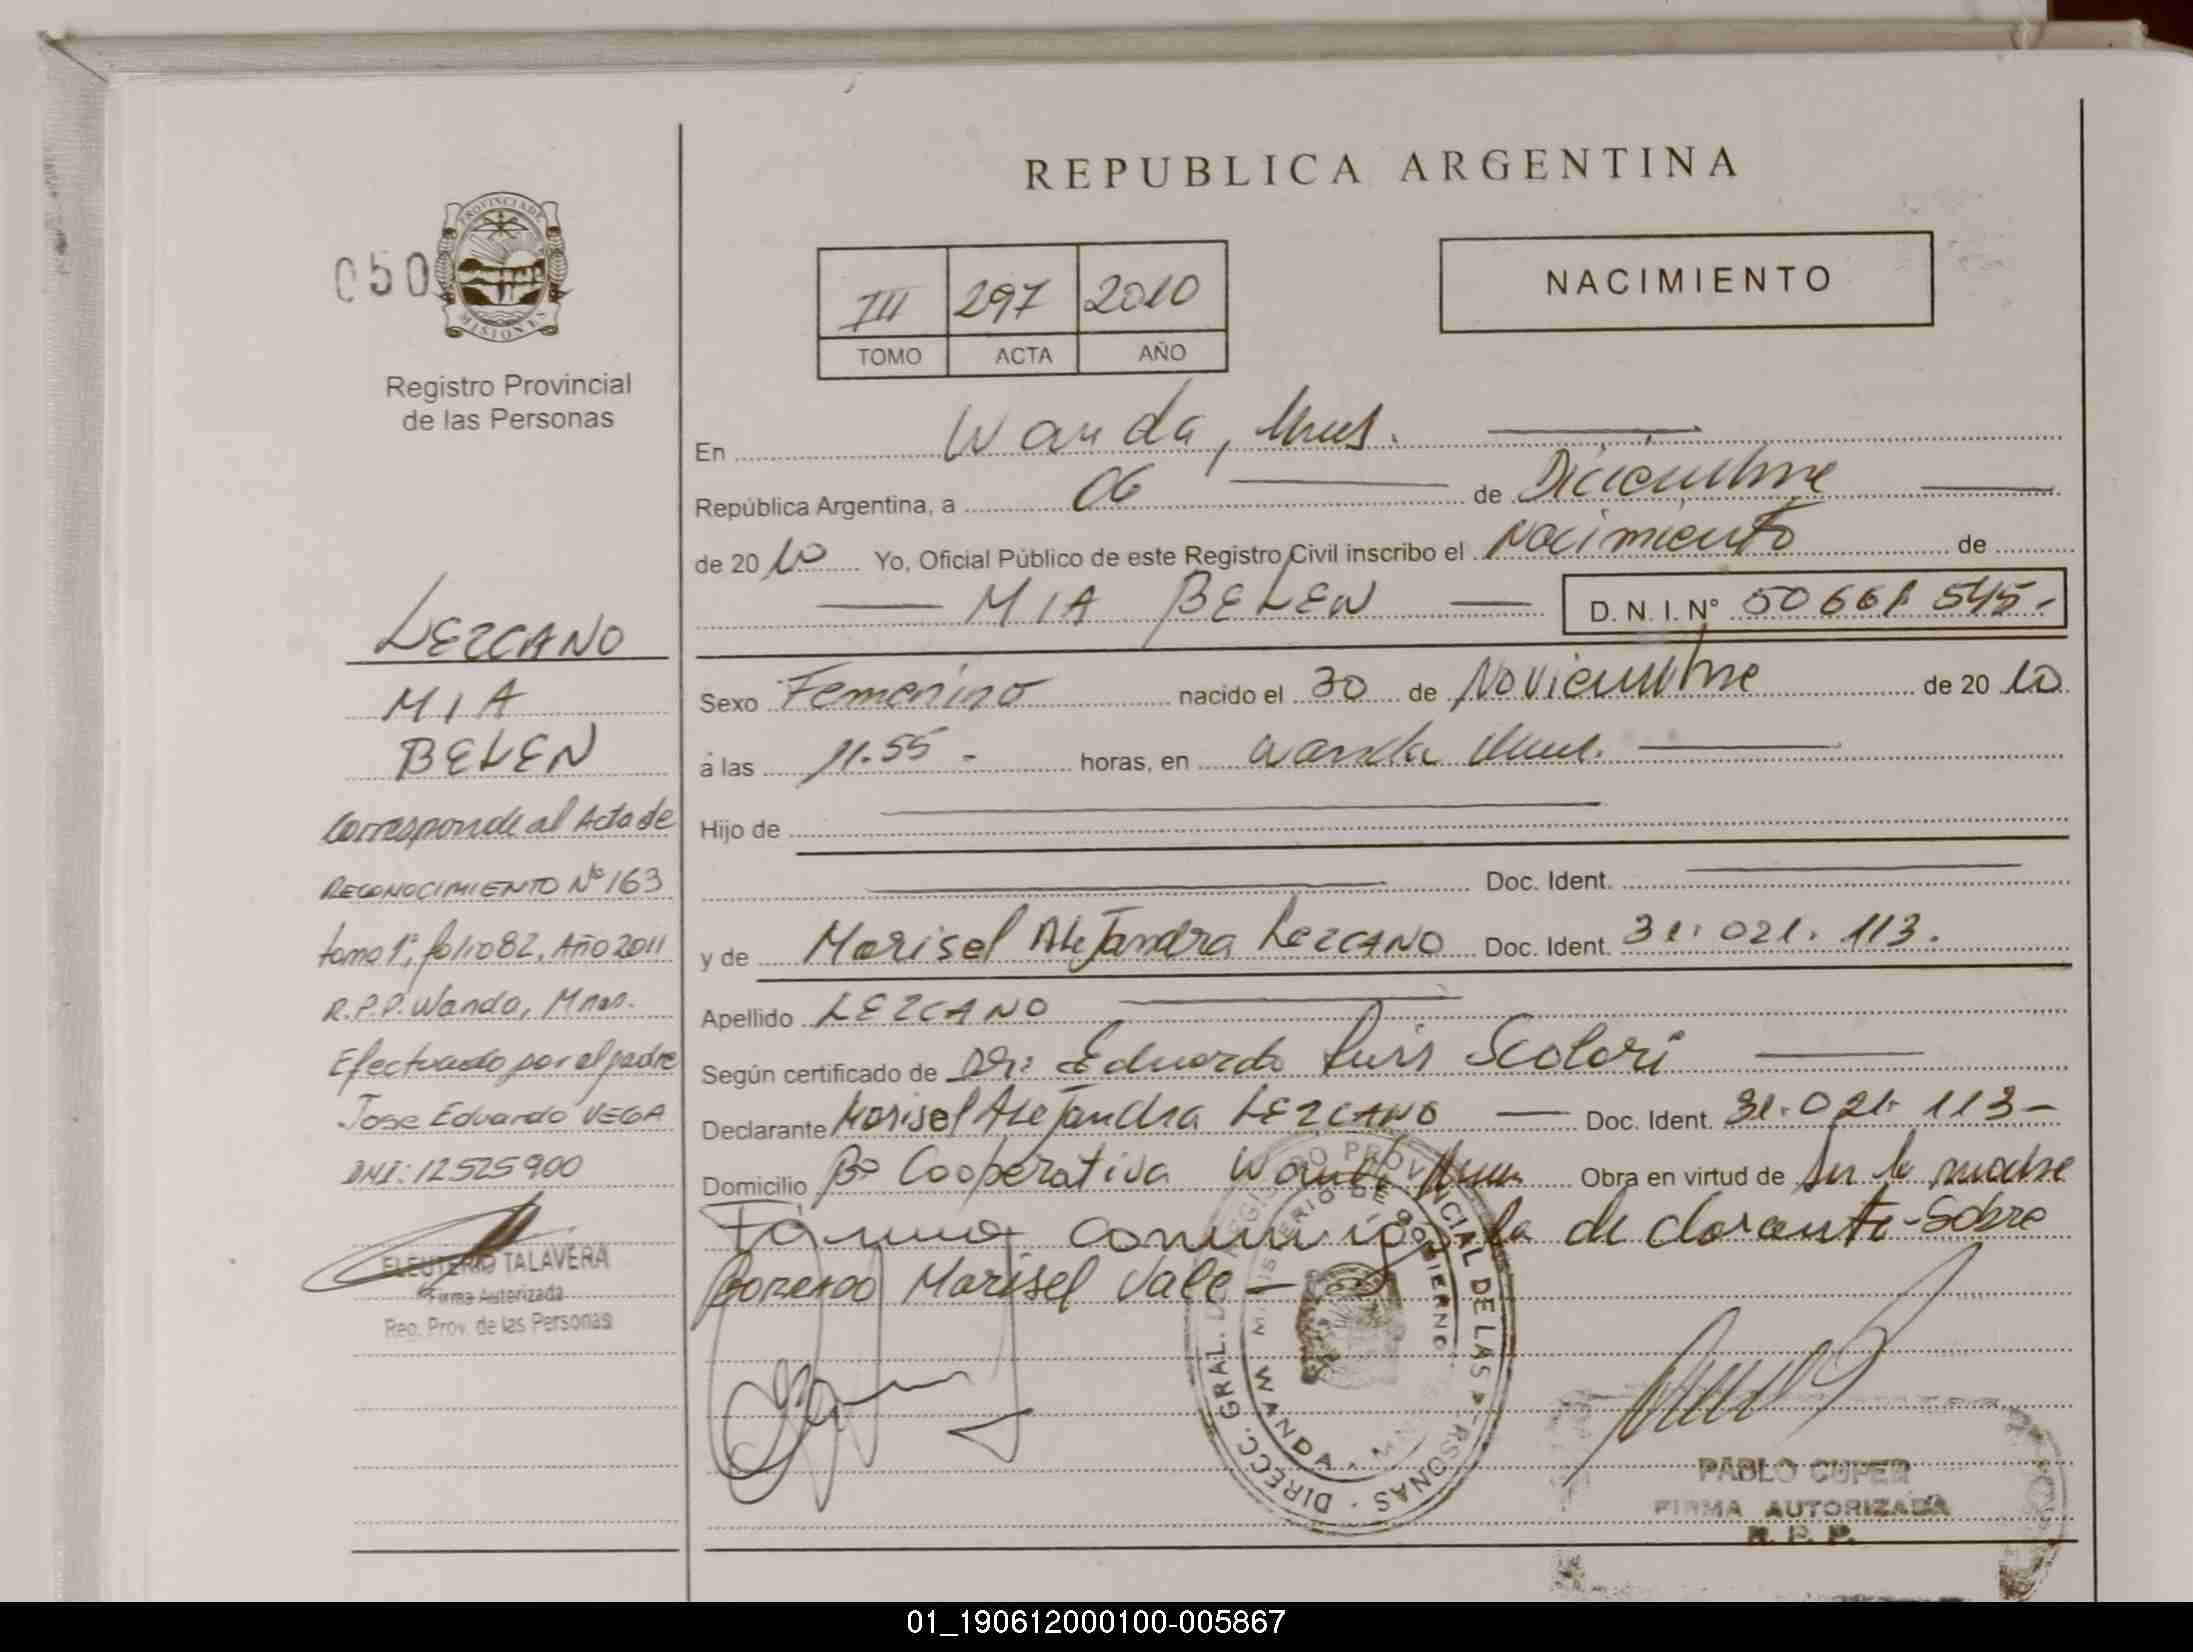 REPUBLICA ARGENTINA
050
PROVINCIA DE
MISIONES
Registro Provincial
de las Personas
III 297 2010
TOMO ACTA AÑO
NACIMIENTO
En Wanda, Mnes.
República Argentina, a 06 de Diciembre
de 2010 Yo, Oficial Público de este Registro Civil inscribo el Nacimiento de
MIA BELEN D. N. I. N° 50661 545-
Sexo Femenino nacido el 30 de Noviembre de 2010
a las 11.55 - horas, en Wanda Mnes.
Hijo de
Doc. Ident.
y de Marisel Alejandra Lezcano Doc. Ident. 31.021.113.
Apellido LEZCANO
Según certificado de Dr: Eduardo Luis Scolari
Declarante Marisel Alejandra LEZCANO Doc. Ident. 31.021.113-
Domicilio Bº Cooperativa Wanda Mnes Obra en virtud de ser la madre
Firma conmigo la declarante-Sobre
borrado Marisel Vale-
LEZCANO
MIA
BELEN
Corresponde al Acta de
RECONOCIMIENTO Nº 163
tomo 1º, folio 82, Año 2011
R.P.P. Wanda, Mnes.
Efectuado por el padre
Jose Eduardo VEGA
DNI: 12525900
ELEUTERIO TALAVERA
Firma Autorizada
Reg. Prov. de las Personas
DIRECC. GRAL. DEL REGISTRO PROVINCIAL DE LAS PERSONAS
MINISTERIO DE GOBIERNO
WANDA
PABLO CUPER
FIRMA AUTORIZADA
R. P. P.
01_190612000100-005867